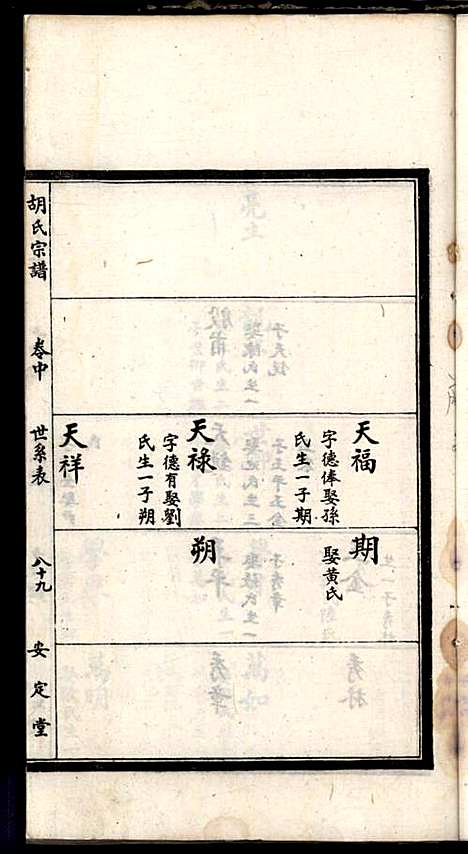 天福
字德俸娶孫
氏生一子期
天祿
字德有娶劉
氏生一子朔
天祥
期
娶黃氏
朔
胡氏宗譜
卷中
世系表
八十九
安定堂